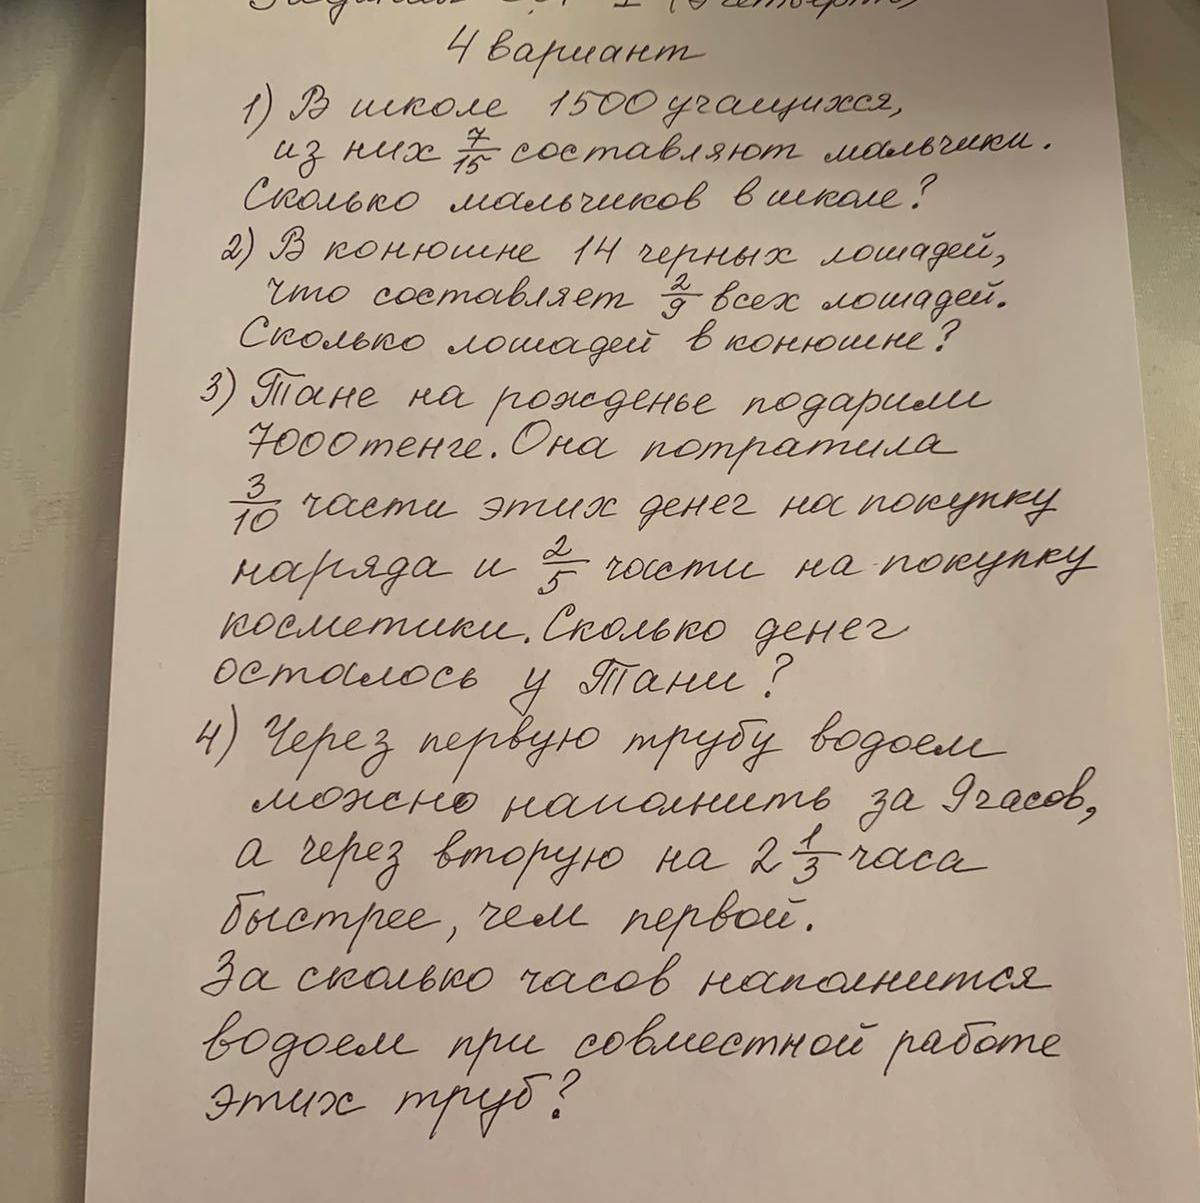 4 вариант
1) В школе 1500 учащихся,
из них 7/15 составляют мальчики.
Сколько мальчиков в школе?
2) В конюшне 14 черных лошадей,
что составляет 2/9 всех лошадей.
Сколько лошадей в конюшне?
3) Тане на рожденье подарили
7000 тенге. Она потратила
3/10 части этих денег на покупку
наряда и 2/5 части на покупку
косметики. Сколько денег
осталось у Тани?
4) Через первую трубу водоем
можно наполнить за 9 часов,
а через вторую на 2 1/3 часа
быстрее, чем первой.
За сколько часов наполнится
водоем при совместной работе
этих труб?